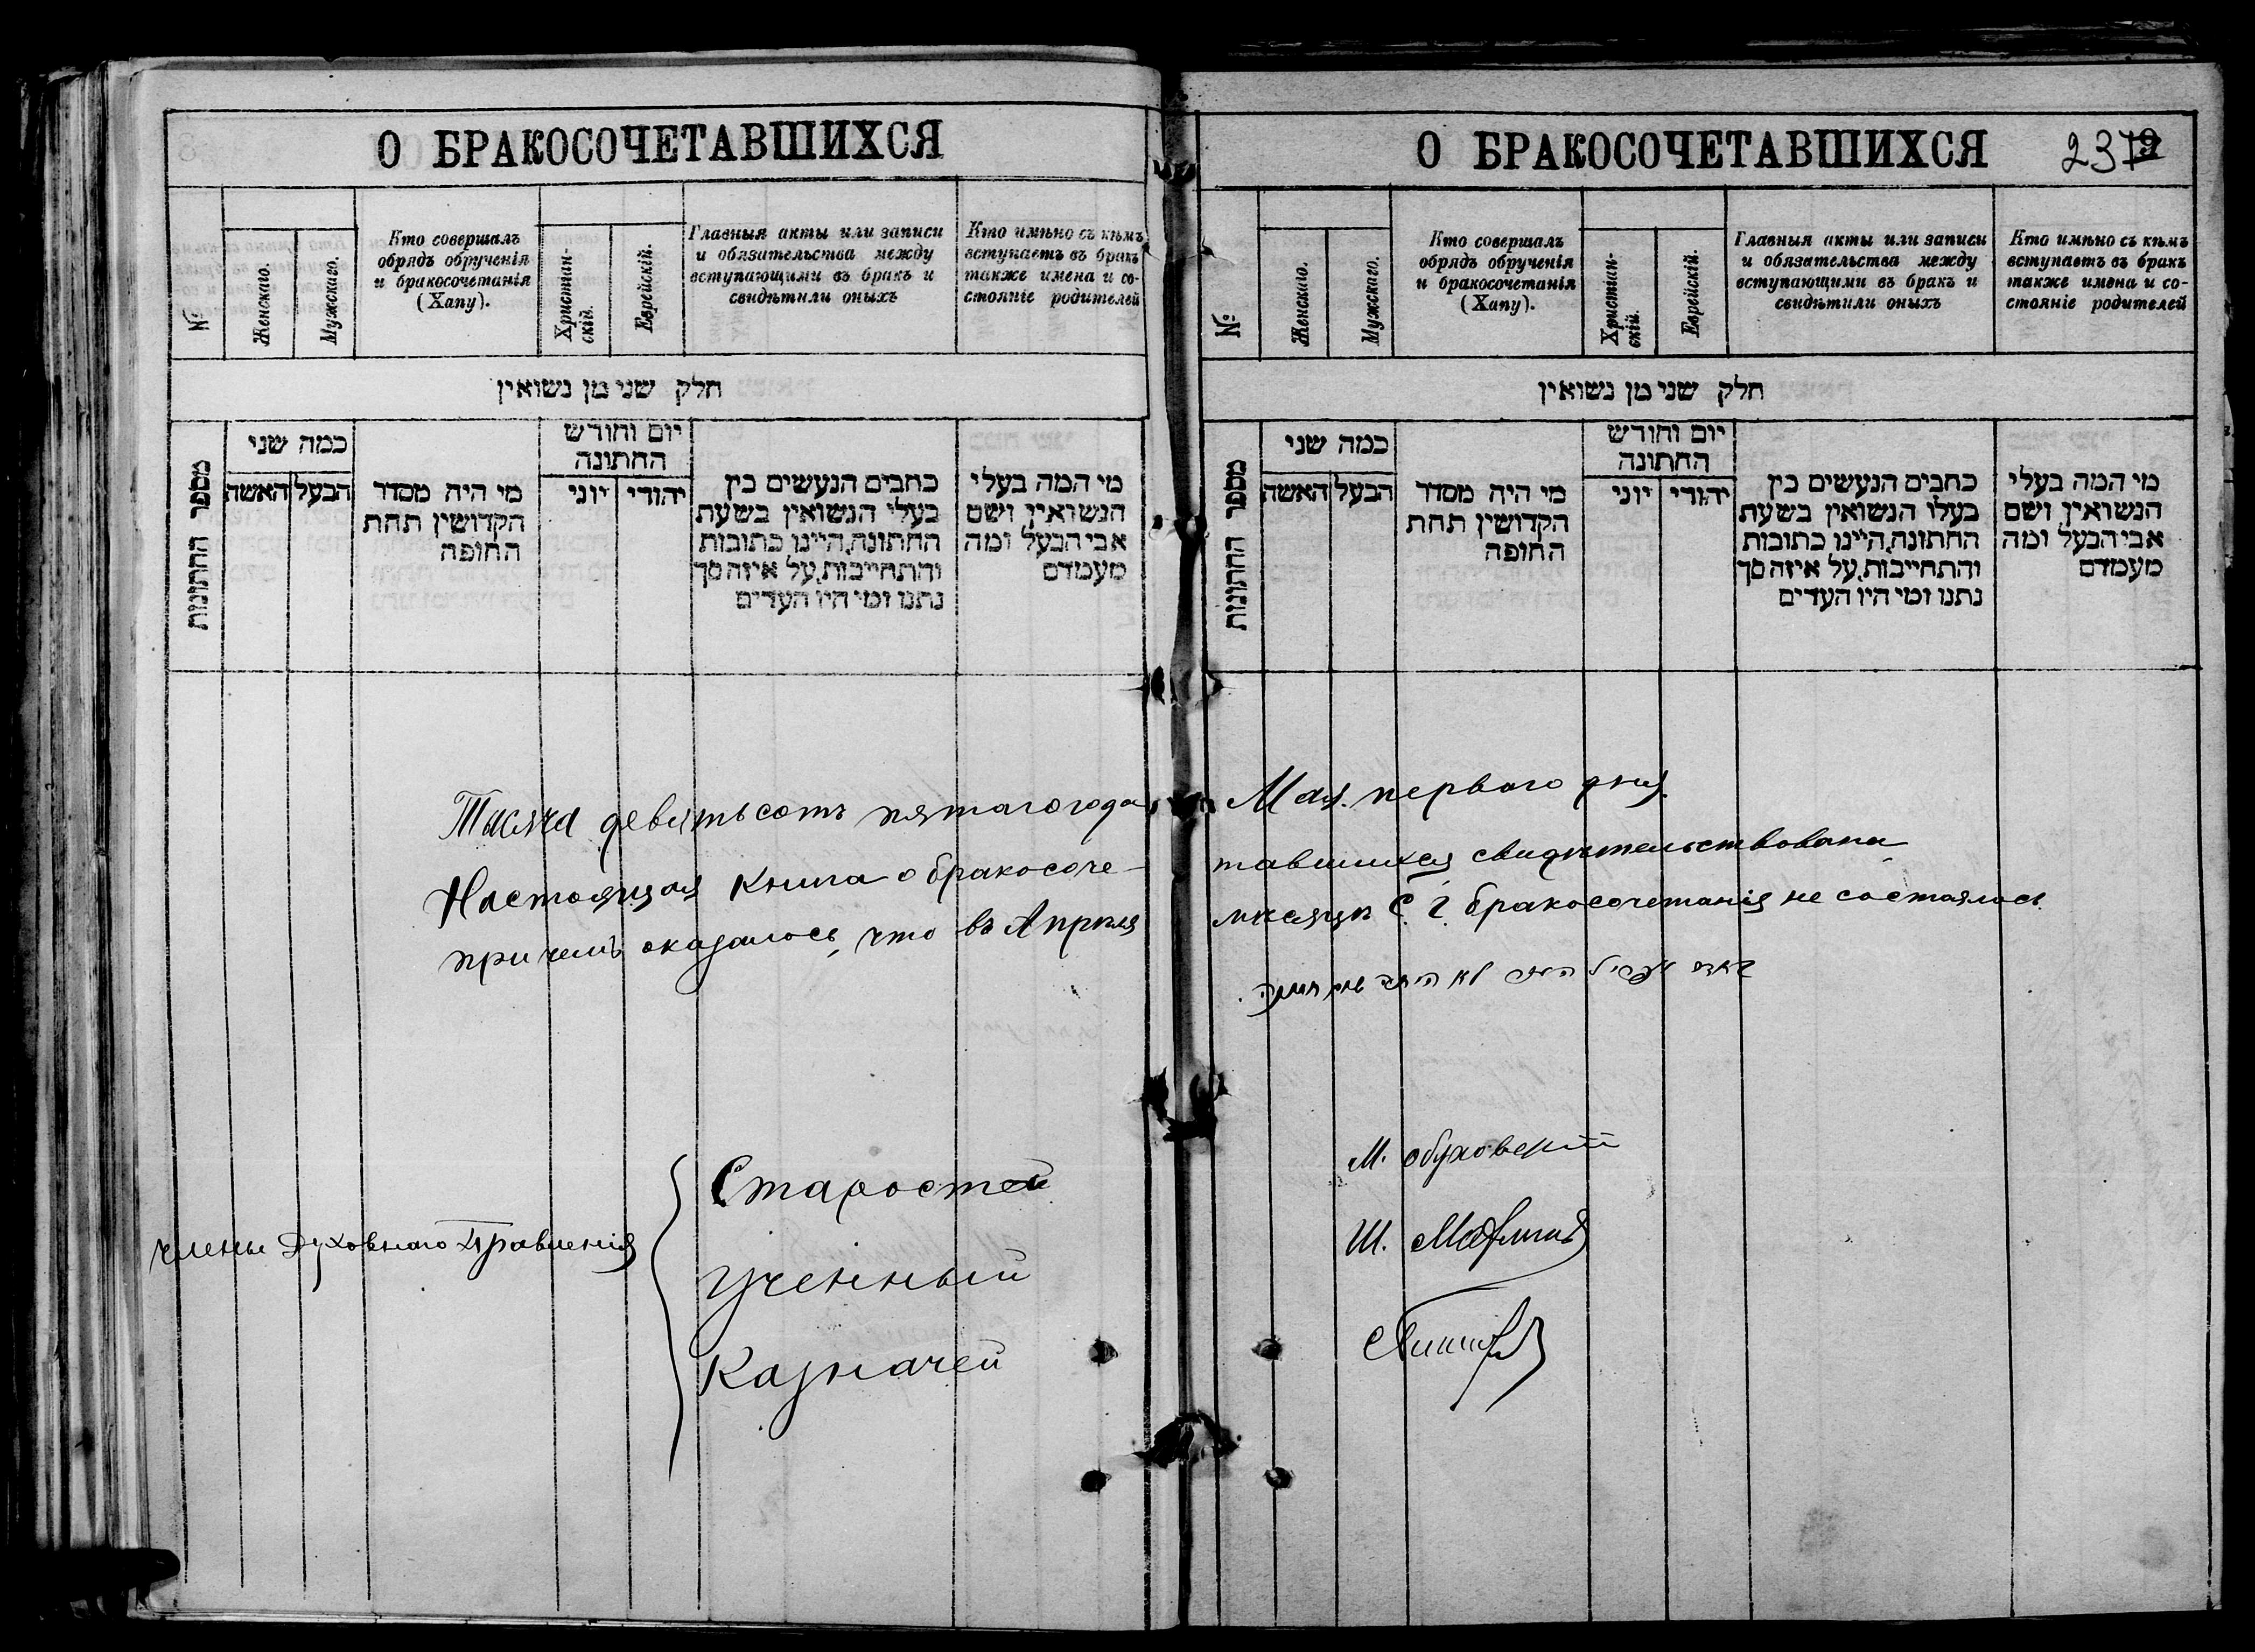 О БРАКОСОЧЕТАВШИХСЯ
№
Женскаго.
Мужскаго.
Кто совершалъ
обрядъ обрученія
и бракосочетанія
(Хапу).
Христіан-
скій.
Еврейскій.
Главныя акты или записи
и обязательства между
вступающими въ бракъ и
свидѣтили оныхъ
Кто имѣно съ кѣмъ
вступаетъ въ бракъ
также имена и со-
стояніе родителей
חלק שני מן נשואין
מספר החתונות
כמה שני
האשה
הבעל
מי היה מסדר
הקדושין תחת
החופה
יום וחודש
החתונה
יוני
יהודי
כתבים הנעשים בין
בעלי הנשואין בשעת
החתונה, היינו כתובות
והתחייבות, על איזה סך
נתנו ומי היו העדים
מי המה בעלי
הנשואין, ושם
אבי הבעל ומה
מעמדם
Тысяча девятьсотъ пятаго года
Настоящая книга о бракосоче-
причемъ оказалось, что въ Апрѣля
члены Духовнаго Правленія
Староста
Ученный
Казначей
О БРАКОСОЧЕТАВШИХСЯ
237
№
Женскаго.
Мужскаго.
Кто совершалъ
обрядъ обрученія
и бракосочетанія
(Хапу).
Христіан-
скій.
Еврейскій.
Главныя акты или записи
и обязательства между
вступающими въ бракъ и
свидѣтили оныхъ
Кто имѣно съ кѣмъ
вступаетъ въ бракъ
также имена и со-
стояніе родителей
חלק שני מן נשואין
מספר החתונות
כמה שני
האשה
הבעל
מי היה מסדר
הקדושין תחת
החופה
יום וחודש
החתונה
יוני
יהודי
כתבים הנעשים בין
בעלו הנשואין בשעת
החתונה, היינו כתובות
והתחייבות, על איזה סך
נתנו ומי היו העדים
מי המה בעלי
הנשואין, ושם
אבי הבעל ומה
מעמדם
Мая первого дня
тавшихся свидѣтельствована
мѣсяцѣ С. Г. бракосочетанія не состоялось
לא היתה שום חתונה
М. Обуховскій
Ш.